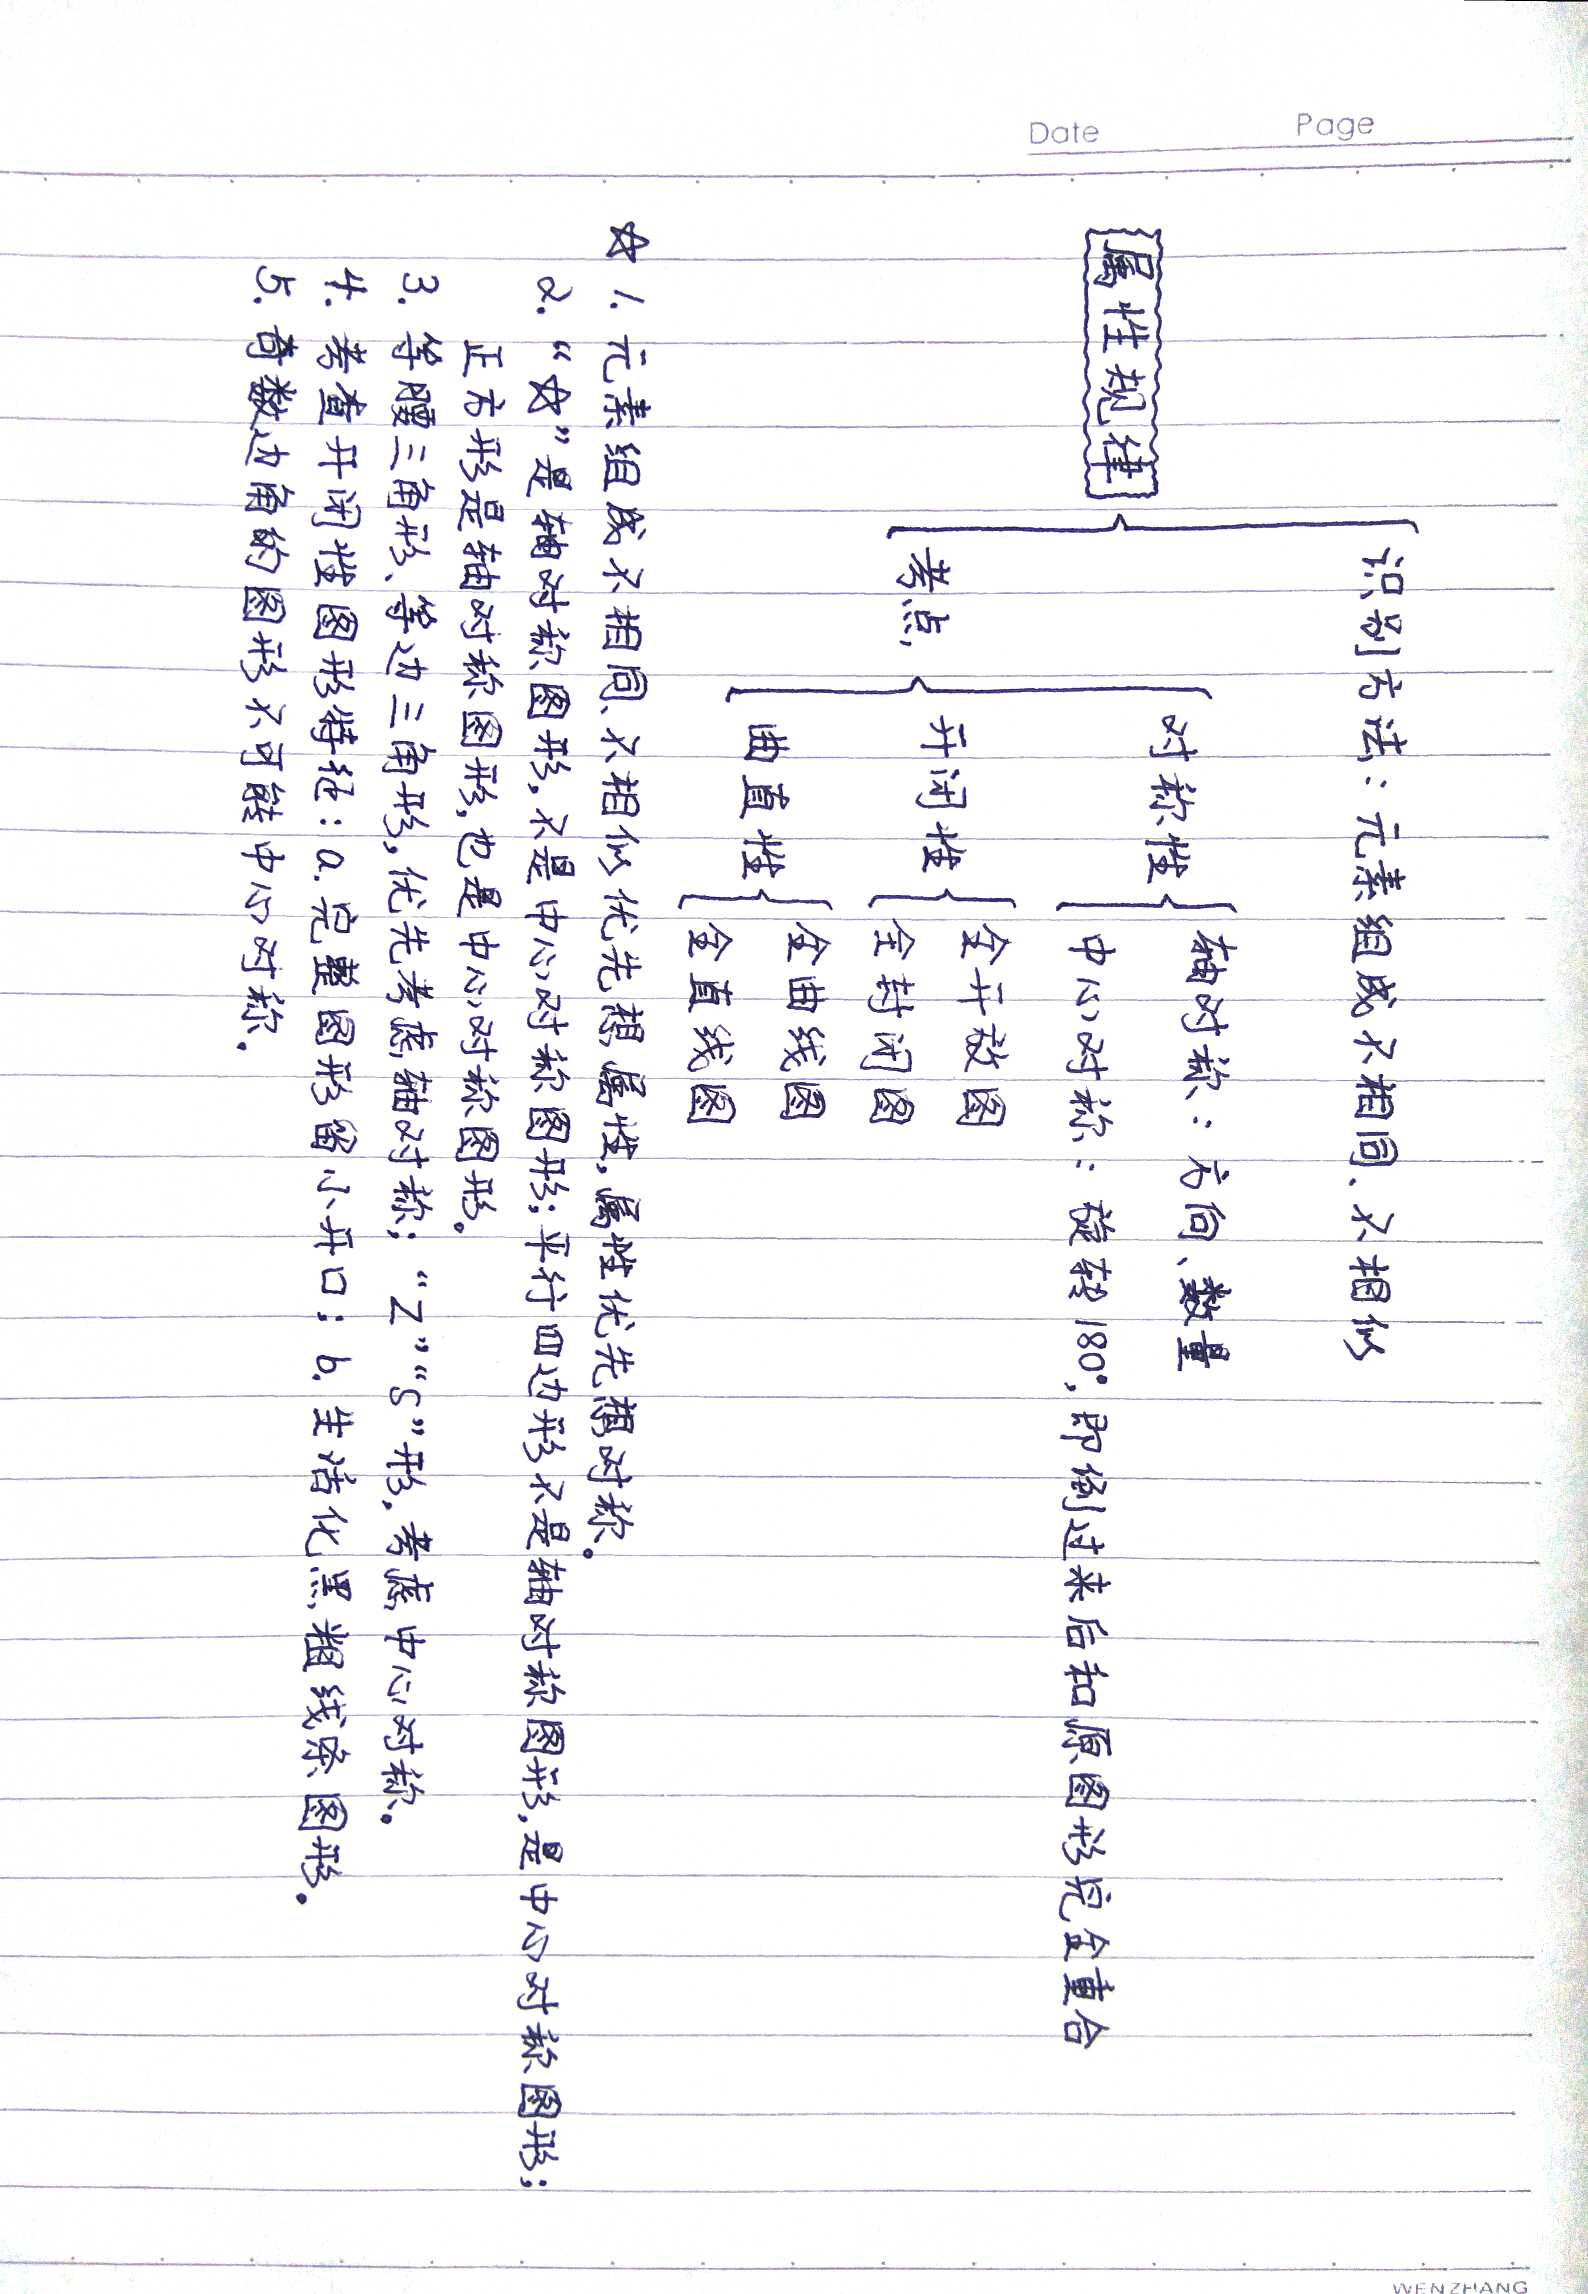 Date Page
识别方法：元素组成不相同、不相似
属性规律
考点
对称性
轴对称：方向、数量
中心对称：旋转180°，即倒过来后和原图形完全重合
开闭性
全开放图
全封闭图
曲直性
全曲线图
全直线图
☆ 1. 元素组成不相同、不相似优先想属性，属性优先想对称。
2. “☆”是轴对称图形，不是中心对称图形；平行四边形不是轴对称图形，是中心对称图形；
正方形是轴对称图形，也是中心对称图形。
3. 等腰三角形、等边三角形，优先考虑轴对称；“Z”“S”形，考虑中心对称。
4. 考查开闭性图形特征：a. 完整图形留小开口；b. 生活化黑粗线条图形。
5. 奇数边角的图形不可能中心对称.
WENZHANG